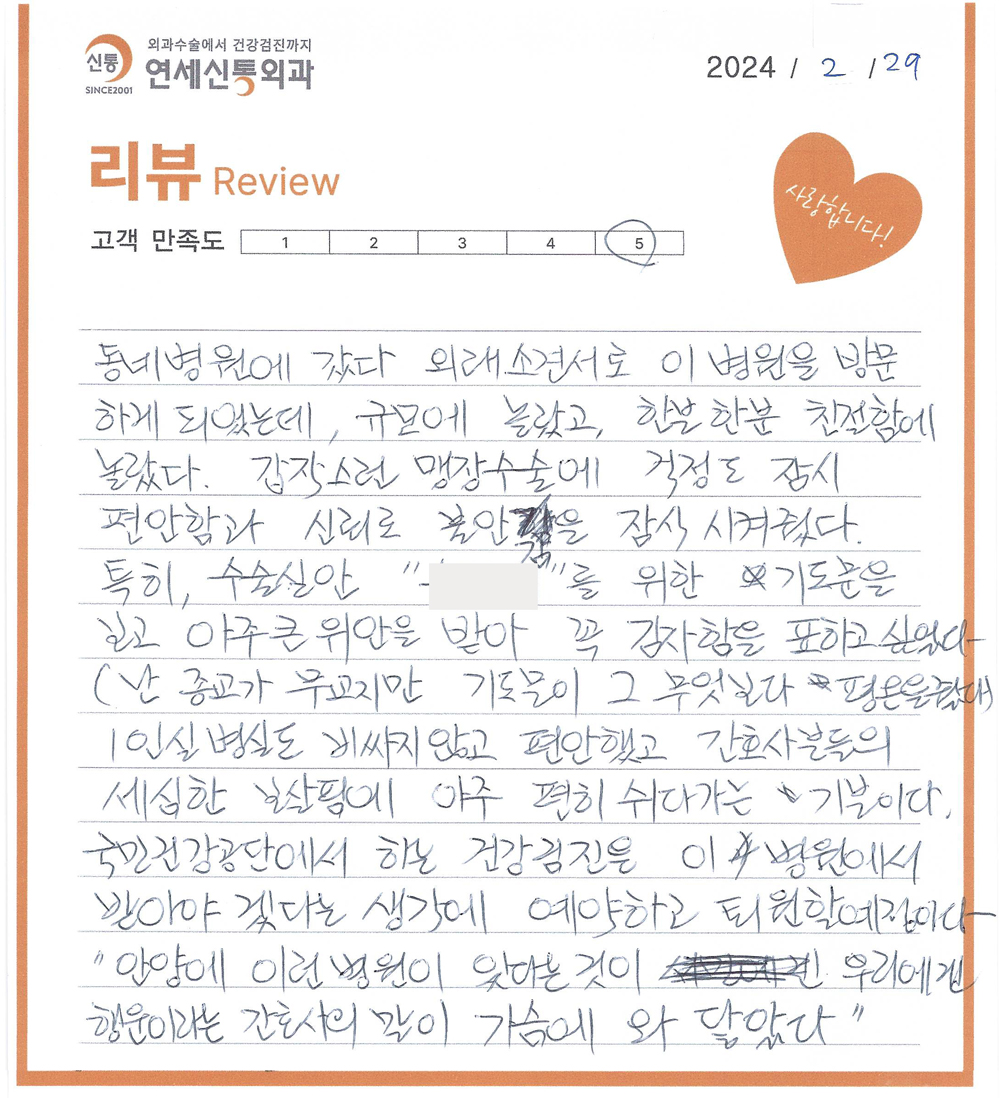 외과수술에서 건강검진까지
신통 연세신통외과
SINCE2001
2024 / 2 / 29
리뷰 Review
사랑합니다!
고객 만족도 1 2 3 4 5
동네병원에 갔다 외래소견서로 이 병원을 방문
하게 되었는데, 규모에 놀랐고, 한분한분 친절함에
놀랐다. 갑작스런 맹장수술에 걱정도 잠시
편안함과 신뢰로 불안감을 잠식시켜줬다.
특히, 수술실안 " "를 위한 기도문을
보고 아주큰위안을 받아 꼭 감사함을 표하고싶었다
(난 종교가 무교지만 기도문이 그 무엇보다 평온을줬다)
1인실병실도 비싸지않고 편안했고 간호사분들의
세심한 보살핌에 아주 편히 쉬다가는 기분이다.
국민건강공단에서 하는 건강검진은 이 병원에서
받아야 겠다는 생각에 예약하고 퇴원할예정이다
"안양에 이런병원이 있다는것이 우리에겐
행운이라는 간호사의 말이 가슴에 와 닿았다"